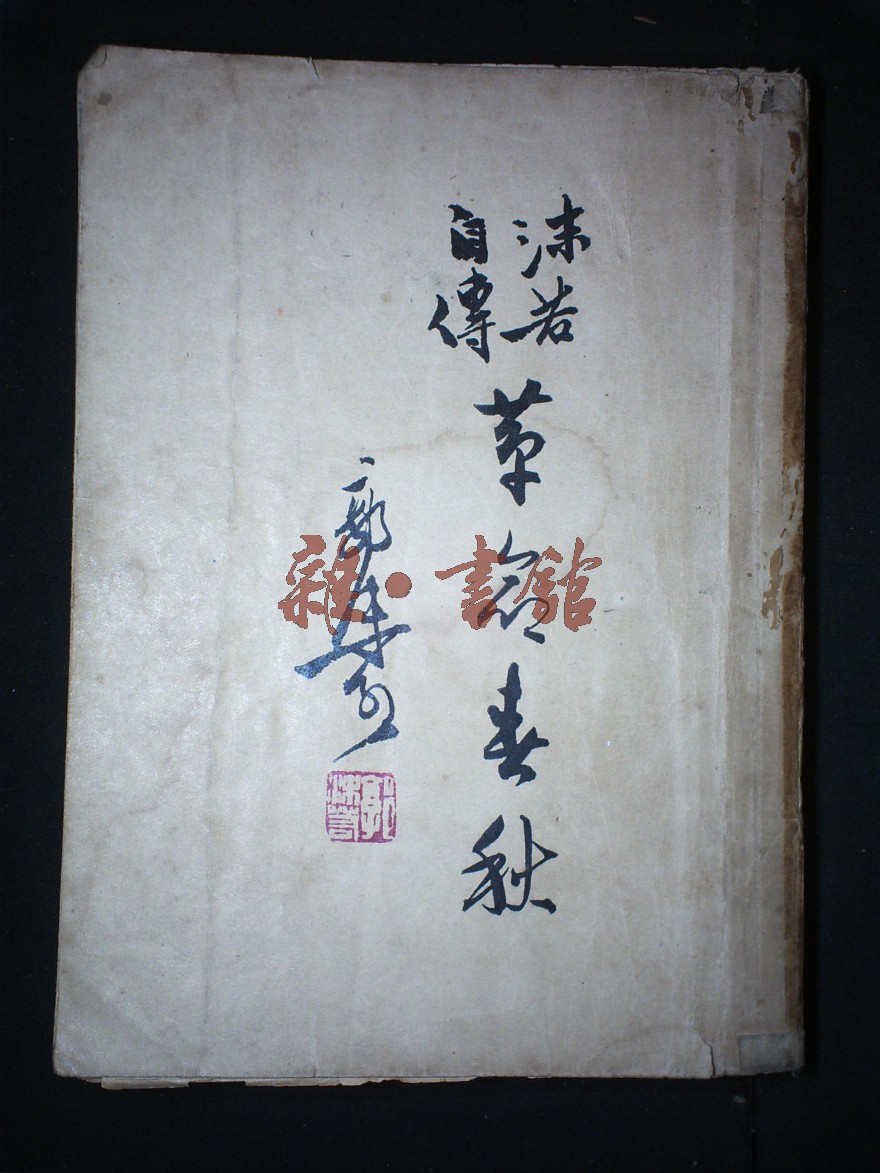 沫若
自傳
革命春秋
郭沫若
郭沫若
雜·書館